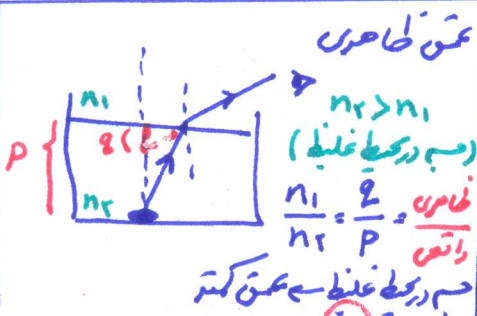 عمق ظاهری
n₁
n₂ > n₁
(جسم در محیط غلیظ)
P
q
n₂
n₁/n₂ = q/P = ظاهری/واقعی
جسم در محیط غلیظ ← عمق کمتر